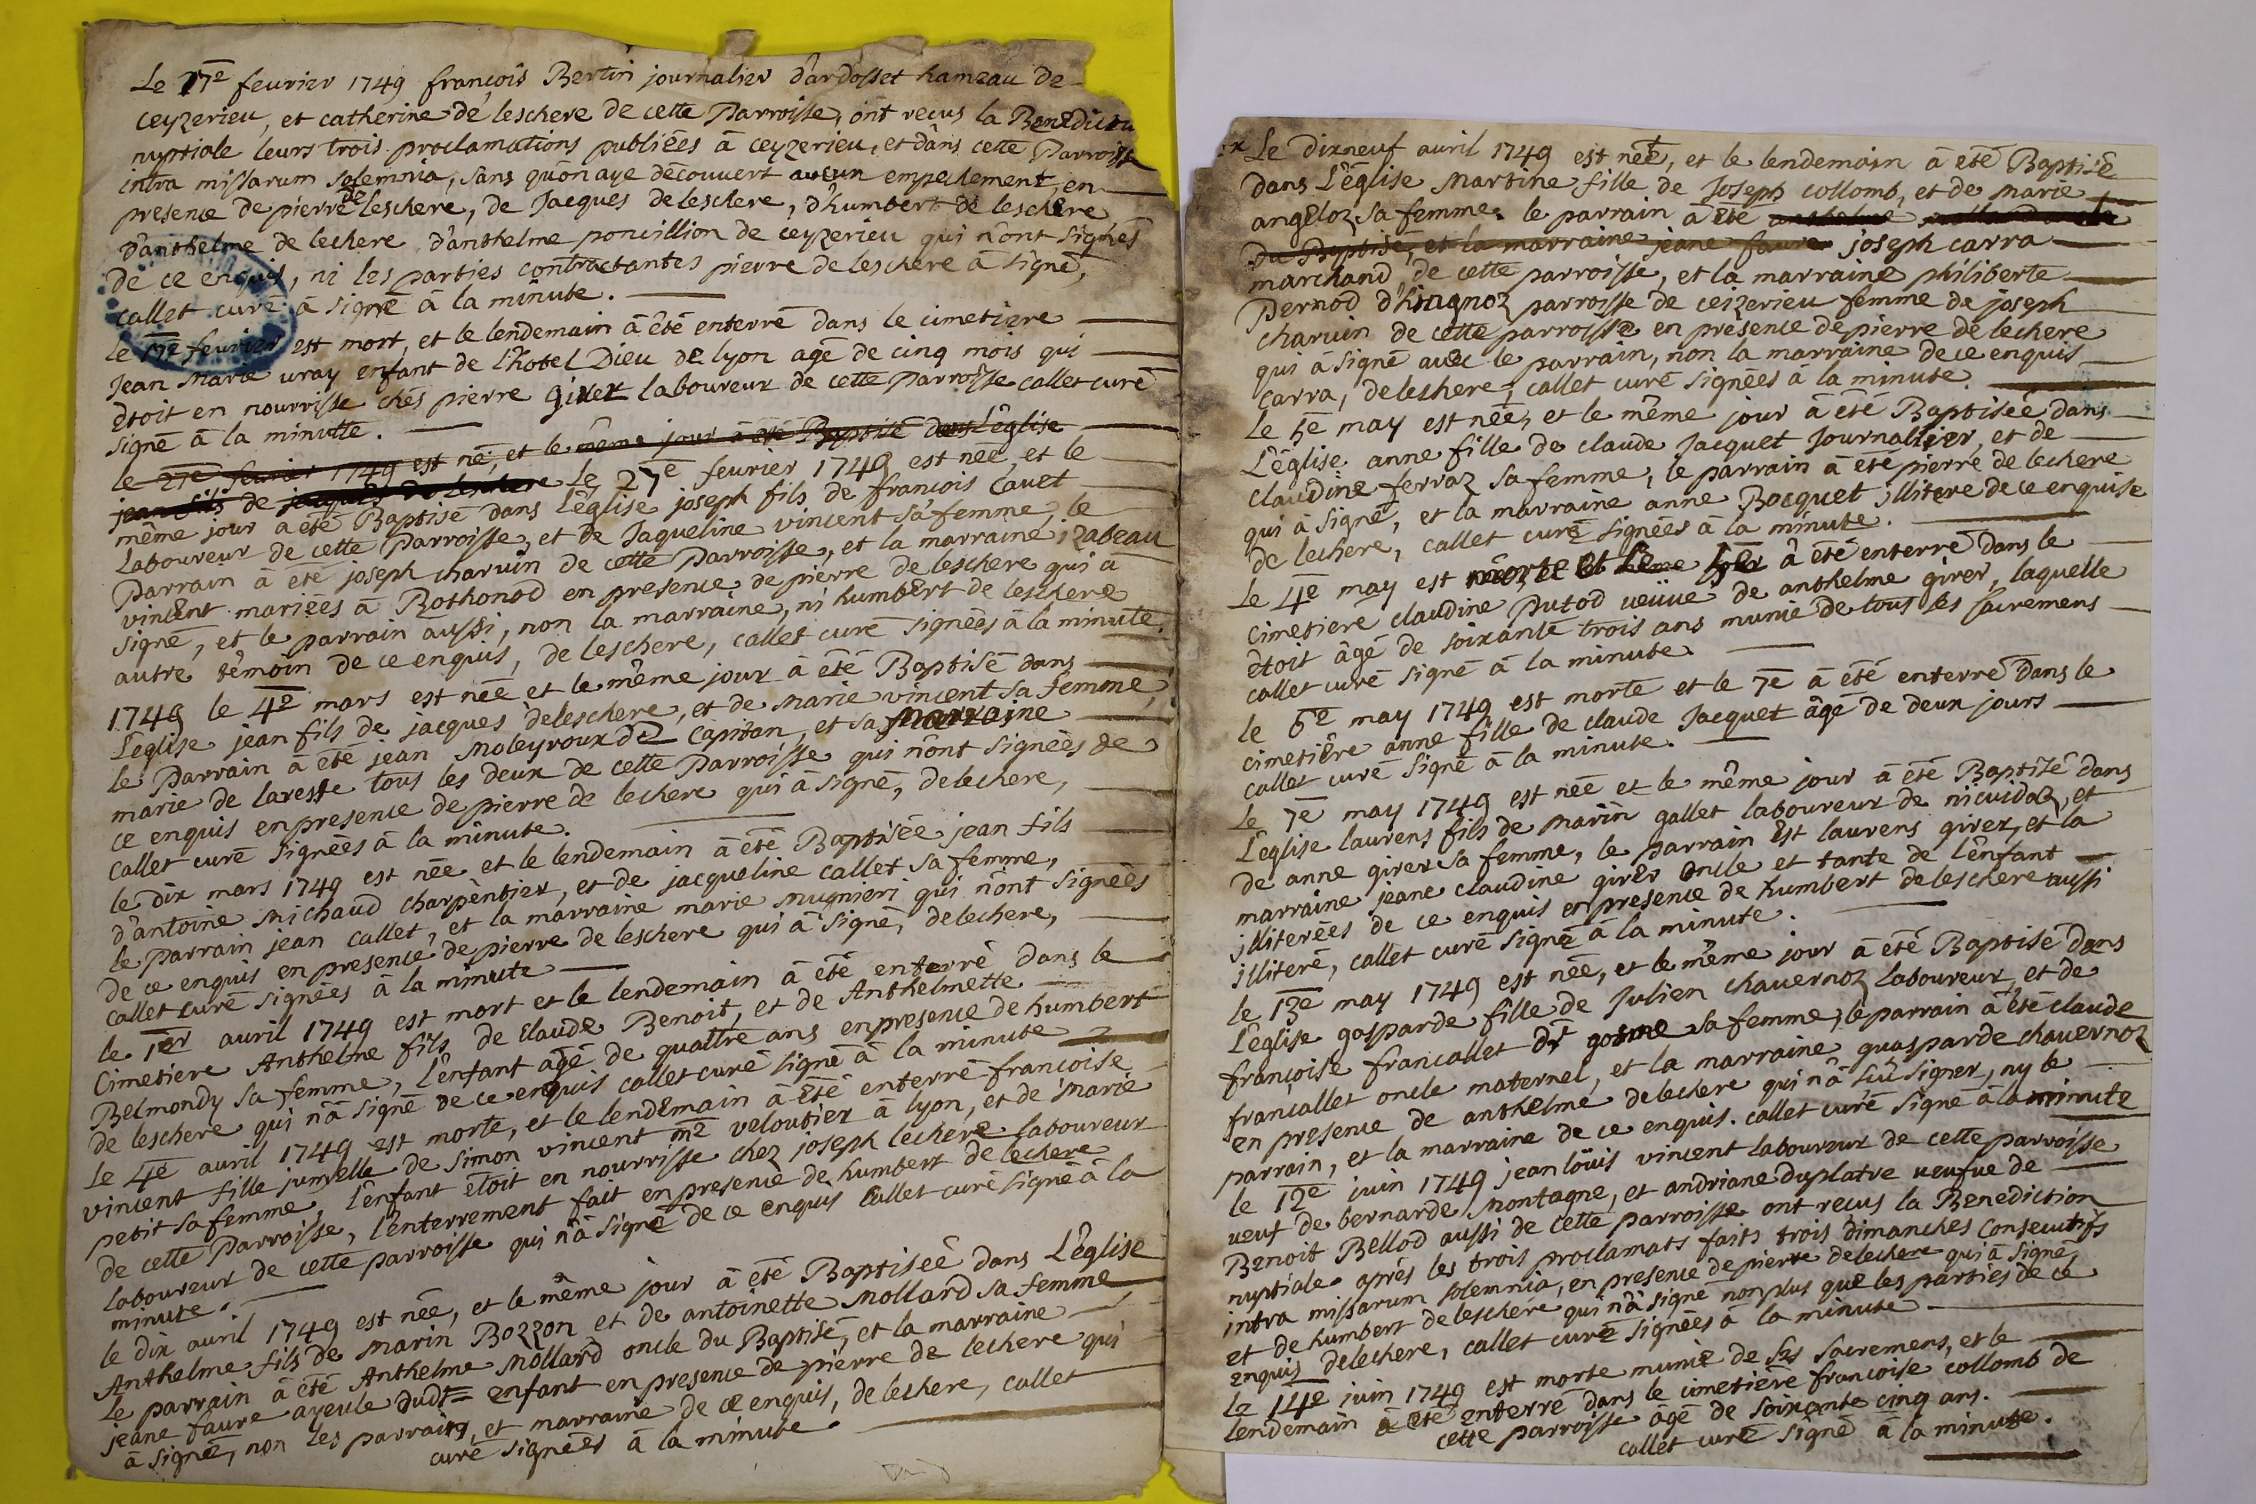 Le 17e feurier 1749 françois Bertin journalier d'ardosset hameau de
ceyzerieu, et catherine de leschere de cette Parroisse, ont recus la Benedictio
nuptiale leurs trois proclamations publiées à ceyzerieu, et dans cette Parroisse
intra missarum solemnia, sans qu'on aye découuert aucun empechement, en
presence de pierre de leschere, de Jacques de leschere, d'humbert de leschere
d'anthelme de lechere d'anthelme poncillion de ceyzerieu qui n'ont signés
de ce enquis, ni les parties contractantes pierre de leschere à signé,
callet curé à signé à la minute.
le 17e feurier est mort, et le lendemain à été enterré dans le cimetiere
Jean Marie uray enfant de l'hotel Dieu de lyon agé de cinq mois qui
étoit en nourrisse chés pierre Girer laboureur de cette Parroisse callet curé
signé à la minutte.
le 27e feurier 1749 est né, et le même jour à été Baptisé dans l'église
jean fils de jacques de leschere Le 27e feurier 1749 est née, et le
même jour à été Baptisé dans l'église joseph fils de françois Cauet
Laboureur de cette Parroisse, et de Jaqueline vincent sa femme, le
Parrain à été joseph charuin de cette Parroisse, et la marraine izabeau
vincent mariées à Rothonod en presence de pierre de leschere qui à
signé, et le parrain aussi, non la marraine, ni humbert de leschere
autre témoin de ce enquis, de leschere, callet curé signées à la minute.
1749 le 4e mars est née et le même jour à été Baptisé dans
l'église jean fils de jacques deleschere, et de Marie vincent sa femme,
le Parrain à été jean Moleyroux dt Capitan, et sa marraine
marie de lareste tous les deux de cette Parroisse qui n'ont signées de
ce enquis en presence de pierre de lechere qui à signé, delechere,
callet curé signées à la minute.
le dix mars 1749 est née et le lendemain à été Baptisée jean fils
d'antoine Michaud charpentier, et de jacqueline callet sa femme,
le Parrain jean callet, et la marraine marie mugnieri qui n'ont signées
de ce enquis en presence de pierre de leschere qui à signé, delechere,
callet curé signées à la minute
le 1er auril 1749 est mort et le lendemain à été enterré dans le
Cimetiere Anthelme fils de Claude Benoit, et de Anthelmette
Belmondy sa femme, l'enfant agé de quattre ans en presence de humbert
de leschere qui n'à signé de ce enquis callet curé signé à la minute
Le 4e auril 1749 est morte, et le lendemain à été enterré francoise
vincent fille jumelle de Simon vincent me veloutier à lyon, et de Marie
petit sa femme, l'enfant étoit en nourrisse chez joseph lechere laboureur
de cette Parroisse, l'enterrement fait en presence de humbert de lechere
laboureur de cette parroisse qui n'à signé de ce enquis Callet curé signé à la
minute.
le dix auril 1749 est née, et le même jour à été Baptiseé dans L'église
Anthelme fils de Marin Bozzon et de antoinette Mollard sa femme
le parrain à été Anthelme Mollard oncle du Baptisé, et la marraine
jeane faure ayeule dudt enfant en presence de pierre de lechere qui
à signé, non les parrains, et marraine de ce enquis, de leschere, callet
curé signées à la minute.
Le dixneuf auril 1749 est née, et le lendemain à été Baptisé
dans l'église Martine fille de Joseph collomb, et de Marie
angeloz sa femme. le parrain à été anthelme mollard oncle
du Baptisé, et la marraine jeane faure joseph carra
marchand de cette parroisse, et la marraine philiberte
Pernod d'Aignoz parroisse de ceizerieu femme de joseph
charuin de cette parroisse en presence de pierre de lechere
qui à signé auec le parrain, non la marraine de ce enquis
Carra, deleschere, callet curé signées à la minute.
Le 5e may est née, et le même jour à été Baptiseé dans
L'église anne fille de claude Jacquet Journallier, et de
claudine ferraz sa femme, le parrain à été pierre de lechere
qui à signé, et la marraine anne Bocquet illitere de ce enquise
de lechere, callet curé signées à la minute.
Le 4e may est morte et à été enterré dans le
cimetiere claudine Putod veüue de anthelme girer, laquelle
étoit âgé de soixante trois ans munie de tous les sacremens
callet curé signé à la minute.
le 6e may 1749 est morte et le 7e à été enterré dans le
cimetière anne fille de claude Jacquet âgé de deux jours
callet curé signé à la minute.
Le 7e may 1749 est née et le même jour à été Baptisé dans
L'église laurens fils de marin gallet laboureur de nicuidoz, et
de anne girer sa femme, le parrain est laurens girer, et la
marraine jeane claudine girer oncle et tante de l'enfant
illiterées de ce enquis en presence de humbert deleschere aussi
illiteré, callet curé signé à la minute.
le 13e may 1749 est née, et le même jour à été Baptisé dans
L'église gasparde fille de Julien chauernoz laboureur, et de
françoise francallet dt gosme sa femme, le parrain à été claude
francallet oncle maternel, et la marraine guasparde chauernoz
en presence de anthelme delechere qui n'à sçû signer, ny le
parrain, et la marraine de ce enquis. callet curé signé à la minute
le 12e juin 1749 jean loüis vincent laboureur de cette parroisse
veuf de bernarde Montagne, et andriane duplatre ueufue de
Benoit Bellod aussi de cette parroisse ont recus la Benediction
nuptiale après les trois proclamats faits trois dimanches Consecutifs
intra missarum solemnia, en presence de pierre delechere qui à signé
et de humbert deleschere qui n'à signé non plus que les parties de ce
enquis delechere, callet curé signées à la minute.
Le 14e juin 1749 est morte munie de ses sacremens, et le
lendemain à été enterré dans le cimetière francoise collomb de
cette parroisse âgé de soixante cinq ans.
callet curé signé à la minute.